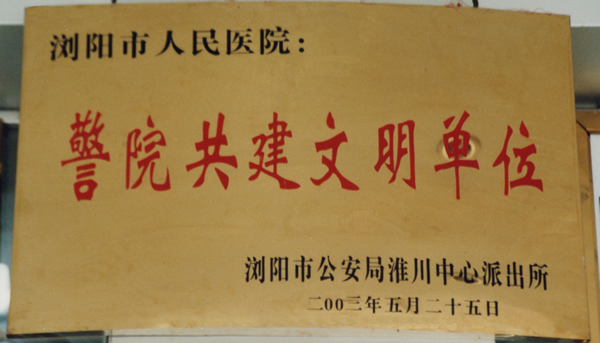 浏阳市人民医院：
警院共建文明单位
浏阳市公安局淮川中心派出所
二00三年五月二十五日